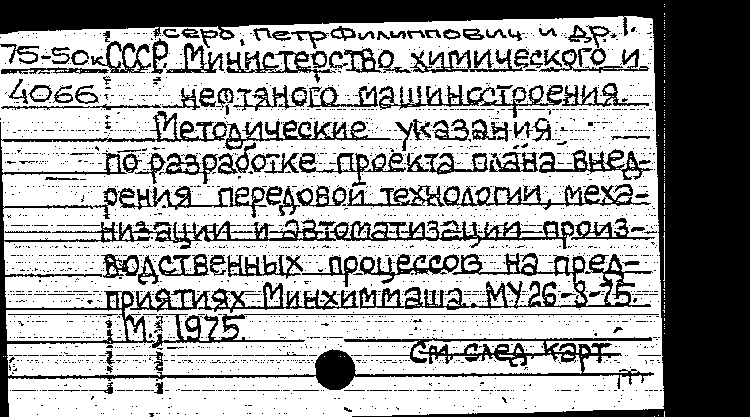 серб, Петр Филиппович и др.].
75-50к СССР. Министерство химического и
4066 нефтяного машиностроения.
Методические указания
по разработке проекта плана внед-
рения передовой технологии, меха-
низации и автоматизации произ-
водственных процессов на пред-
приятиях Минхиммаша. МУ 26-8-75.
М. 1975.
См. след. карт.